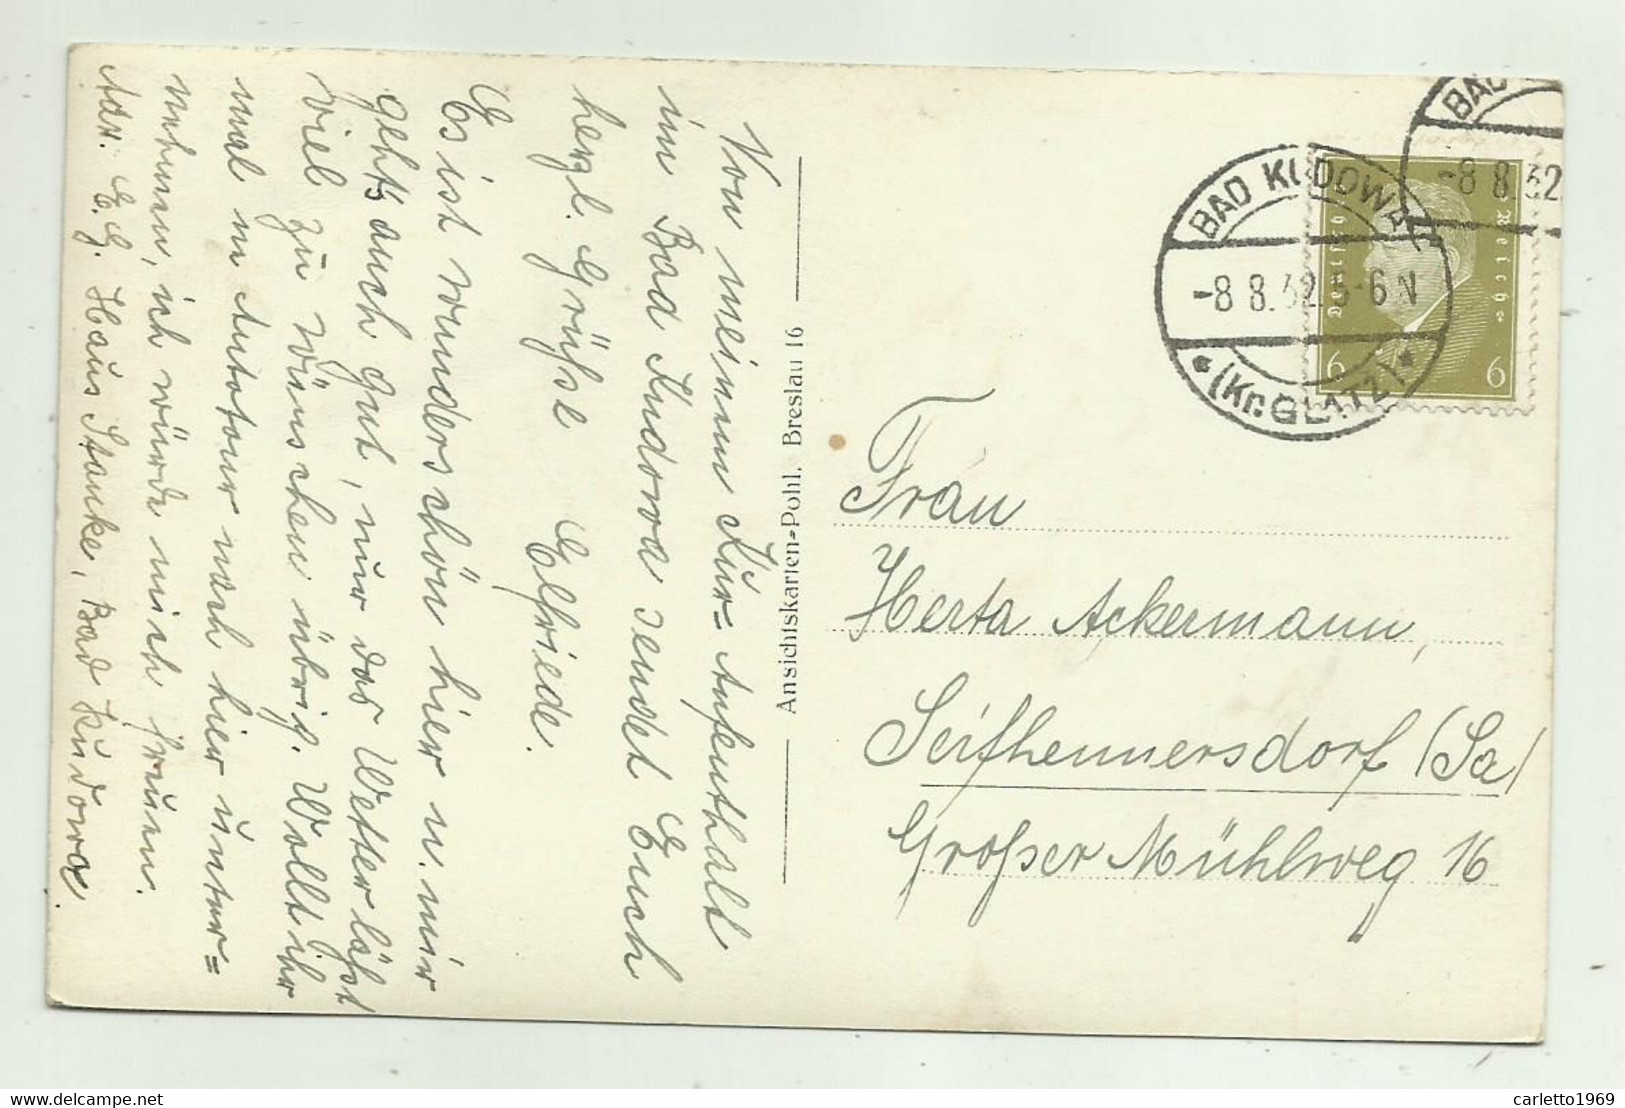 Von meinem Kur= Aufenthalt
im Bad Kudowa sendet Euch
herzl. Grüße Elfriede.
Es ist wunderschön hier u. mir
gehts auch gut, nur das Wetter läßt
viel zu wünschen übrig. Wollt ihr
mal ne Autotour nach hier unter=
nehmen, ich würde mich freuen.
Adr. E. G. Haus Stanke, Bad Kudowa.
Ansichtskarten-Pohl. Breslau 16
BAD KUDOWA
-8 8.32.5-6 N
* (Kr. GLATZ) *
BAD
-8 8.32
Deutsches Reich
6 6
Frau
Herta Ackermann,
Seifhennersdorf (Sa)
Großer Mühlweg 16
delcampe.net
carletto1969